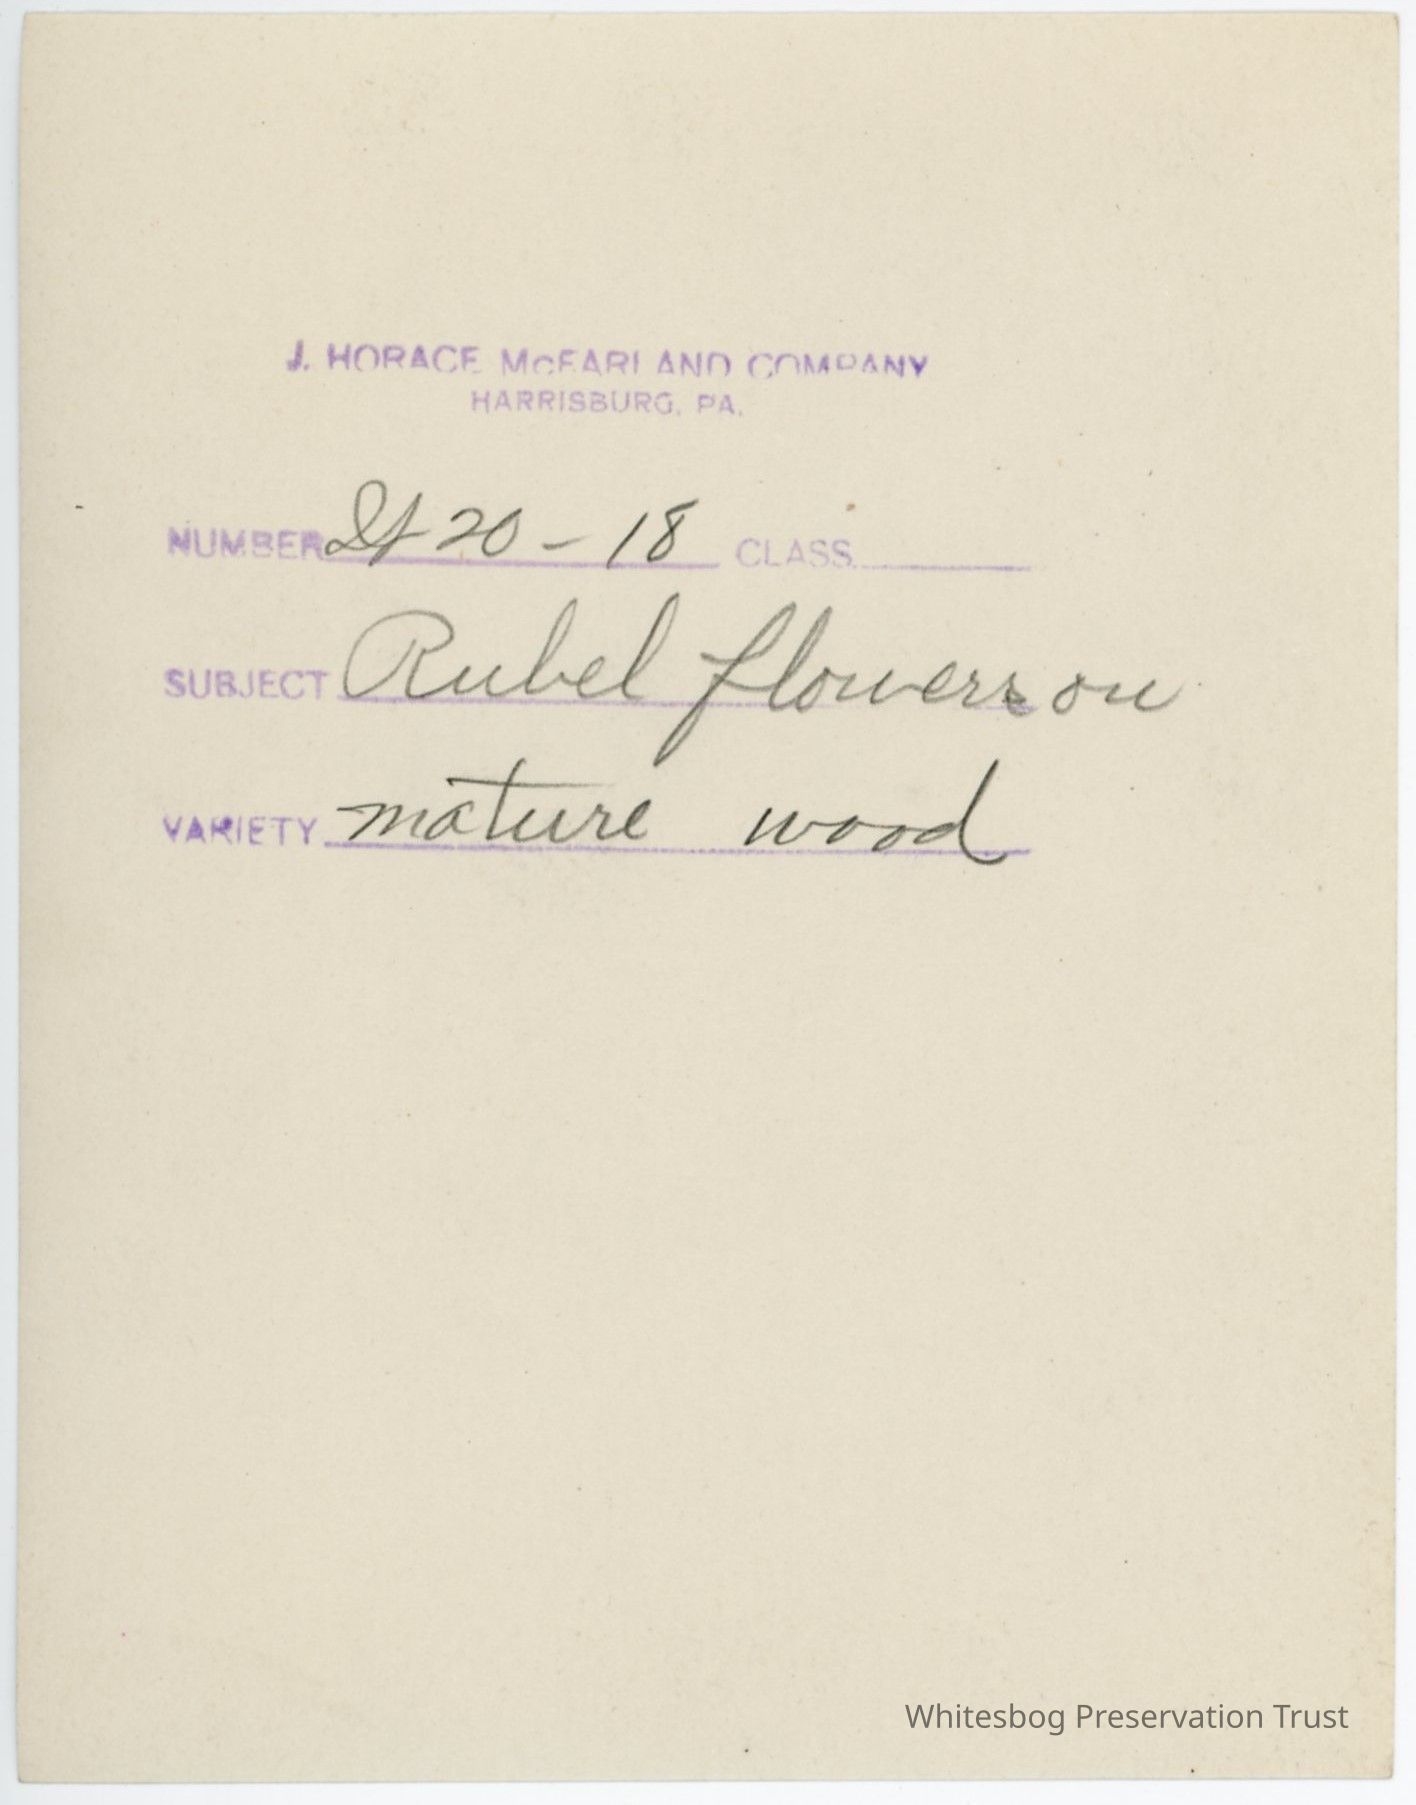 J. HORACE McFARLAND COMPANY
HARRISBURG, PA.
NUMBER 20-18 CLASS
SUBJECT Rubel flowers on
VARIETY mature wood
Whitesbog Preservation Trust